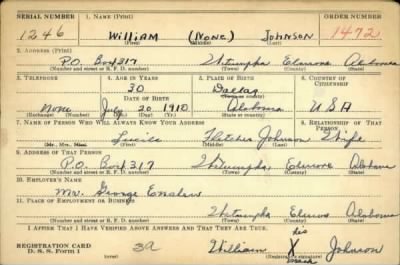 SERIAL NUMBER 1. NAME (Print) ORDER NUMBER
1246 William (None) Johnson 1472
(First) (Middle) (Last)
2. ADDRESS (Print)
P.O. Box 317 Wetumpka Elmore Alabama
(Number and street or R. F. D. number) (Town) (County) (State)
3. TELEPHONE 4. AGE IN YEARS 5. PLACE OF BIRTH 6. COUNTRY OF CITIZENSHIP
30 Dallas
DATE OF BIRTH (Town or county)
None July 20 1910 Alabama U.S.A
(Exchange) (Number) (Mo.) (Day) (Yr.) (State or country)
7. NAME OF PERSON WHO WILL ALWAYS KNOW YOUR ADDRESS 8. RELATIONSHIP OF THAT PERSON
Lucile Fletcher Johnson Wife
(Mr., Mrs., Miss) (First) (Middle) (Last)
9. ADDRESS OF THAT PERSON
P.O. Box 317 Wetumpka Elmore Alabama
(Number and street or R. F. D. number) (Town) (County) (State)
10. EMPLOYER'S NAME
Mr. George Enslen
11. PLACE OF EMPLOYMENT OR BUSINESS
Wetumpka Elmore Alabama
(Number and street or R. F. D. number) (Town) (County) (State)
I AFFIRM THAT I HAVE VERIFIED ABOVE ANSWERS AND THAT THEY ARE TRUE.
his
REGISTRATION CARD 3A William X Johnson
D. S. S. Form 1 (Registrant's signature)
mark